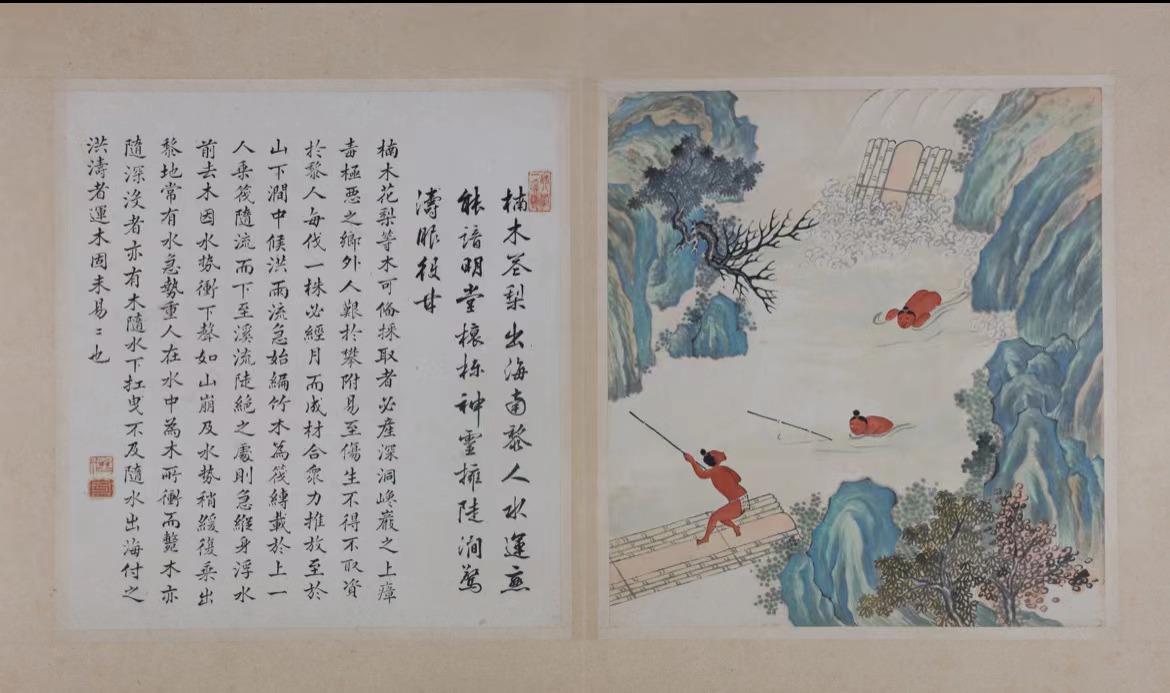 楠木花梨出海南黎人水運亦
能諳明堂榱栋神靈擁陡澗驚
濤眂役甘
楠木花梨等木可俻採取者必產深洞峻巖之上瘴
毒極惡之鄉外人艱於攀附易至傷生不得不取資
於黎人每伐一株必經月而成材合衆力推放至於
山下澗中候洪雨流急始編竹木為筏縛載於上一
人乗筏隨流而下至溪流陡絕之處則急縱身浮水
前去木因水勢衝下聲如山崩及水勢稍緩復乗出
黎地常有水急勢重人在水中為木所衝而斃木亦
隨深没者亦有木隨水下扛曳不及隨水出海付之
洪濤者運木固未易〻也